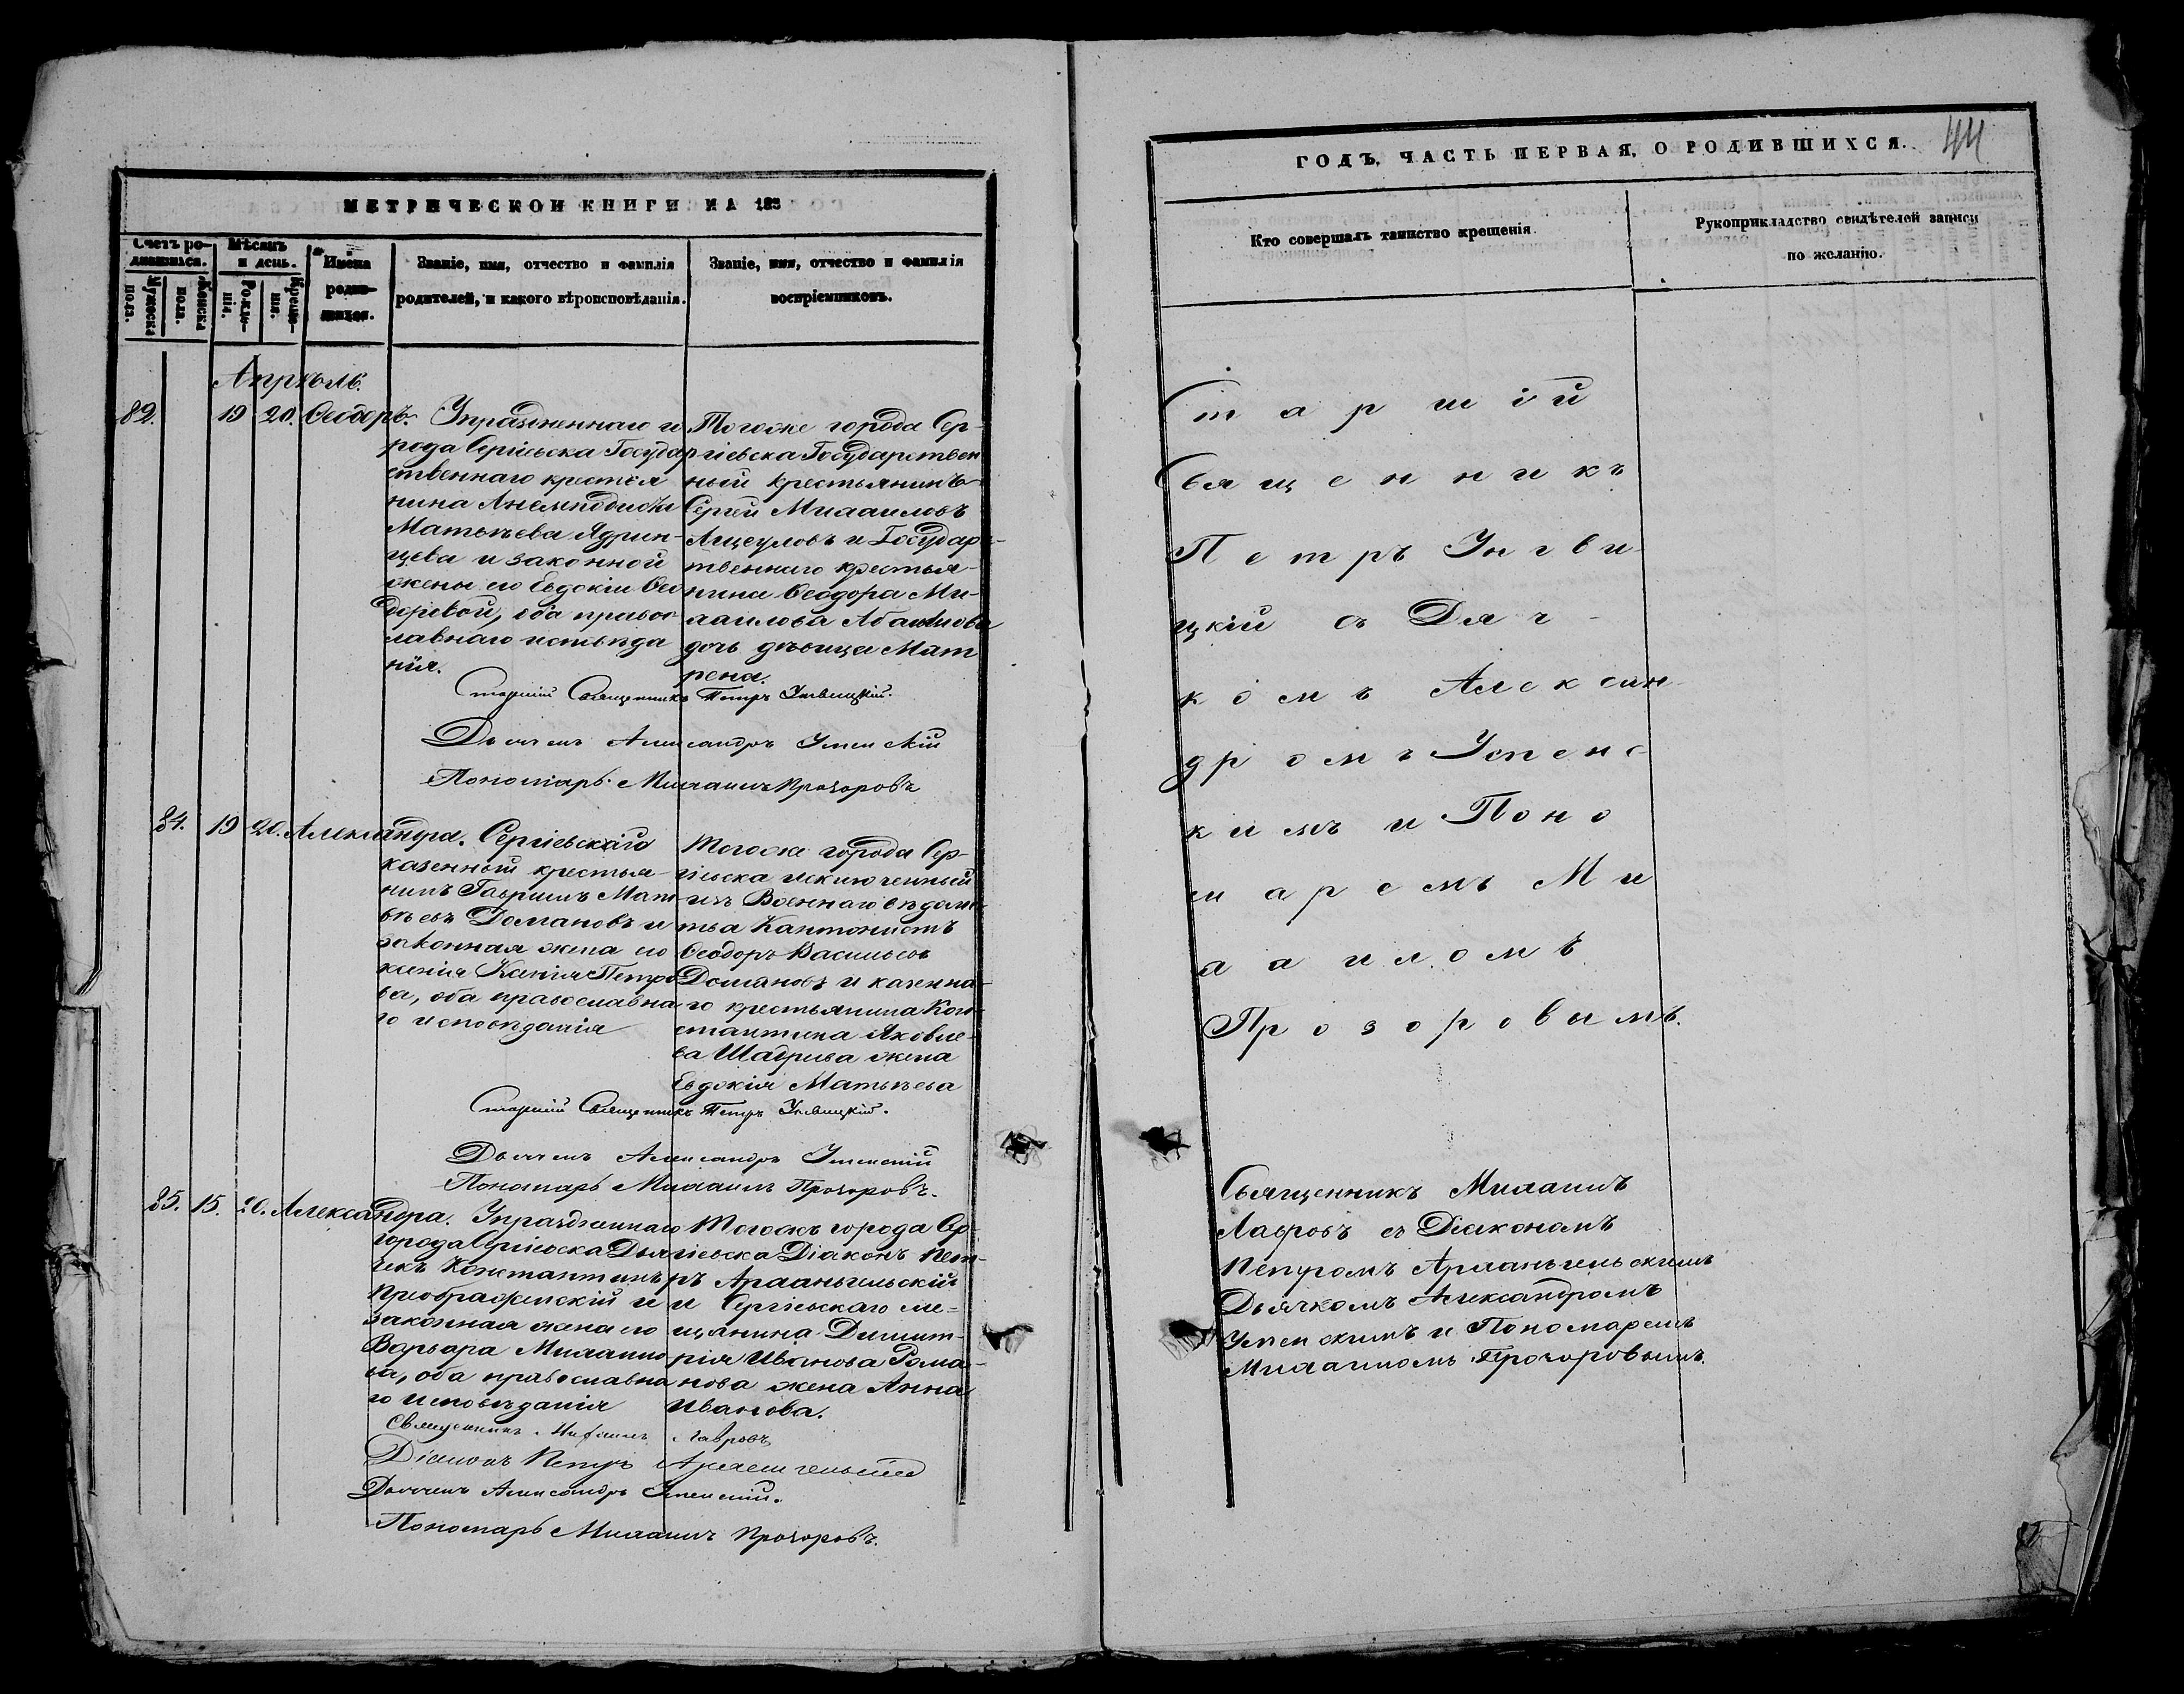 МЕТРИЧЕСКОЙ КНИГИ НА 185
Счетъ ро-
дившихся.
Мѣсяцъ
и день.
Имена
родив-
шихся.
Званіе, имя, отчество и фамилія
родителей, и какого вѣроисповѣданія.
Званіе, имя, отчество и фамилія
воспріемниковъ.
Мужеска
пола.
Женска
пола.
Рожде-
нія.
Креще-
нія.
Апрѣль.
82. 19 20. Ѳеодоръ.
Упраздненнаго го
рода Сергіевска Государ
ственнаго крестья
нина
Матвѣева Ядрин-
цева и законной
жены его Евдокіи Ѳео
доровой, оба правос
лавнаго исповѣда
нія.
Тогоже города Сер-
гіевска Государствен
ный крестьянинъ
Сергей Михаиловъ
и Государ-
твеннаго крестья-
нина Ѳеодора Ми-
хаилова
дочь дѣвица Мат
рена.
Старшій Священникъ Петръ Унгвицкій.
Дьячекъ Александръ Успенскій
Пономарь Михаилъ Прохоровъ
84. 19 20. Александра.
Сергіевскаго
казенный крестья-
нинъ Гавриилъ Мат-
вѣевъ Домановъ и
законная жена его
ксенія Ксенія Петро
ва, оба православна
го исповѣданія
Тогоже города Сер-
гіевска исключенный
изъ Военнаго вѣдомс
тва Кантонистъ
Ѳеодоръ Васильевъ
Домановъ и казенна-
го крестьянина Кон-
стантина Яковле-
ва Шадрина жена
Евдокія Матвѣева
Старшій Священникъ Петръ Унгвицкій.
Дьячекъ Александръ Успенскій
Пономарь Михаилъ Прохоровъ.
85. 15. 20. Александра.
Упраздненнаго
города Сергіевска Дья
чекъ Константинъ
Преображенскій и
законная жена его
Варвара Михаило
ва, оба православна
го исповѣданія
Тогожъ города Сер-
гіевска Діаконъ Пет-
ръ Архангельскій
и Сергіевскаго ме-
щанина Димит-
рія Иванова Рома-
нова жена Анна
Иванова.
Священникъ Михаилъ Лавровъ
Діаконъ Петръ Архангельскій
Дьячекъ Александръ Успенскій.
Пономарь Михаилъ Прохоровъ.
ГОДЪ, ЧАСТЬ ПЕРВАЯ, О РОДИВШИХСЯ.
44
Кто совершалъ таинство крещенія.
Рукоприкладство свидѣтелей записи
по желанію.
Старшій
Священникъ
Петръ Унгви-
цкій съ Дяч-
комъ Алексан-
дромъ Успенс
кимъ и Поно
маремъ Ми
хаиломъ
Прозоровымъ.
Священникъ Михаилъ
Лавровъ съ Діакономъ
Петромъ Архангельскимъ
Дьячкомъ Александромъ
Успенскимъ и Пономаремъ
Михаиломъ Прохоровымъ.